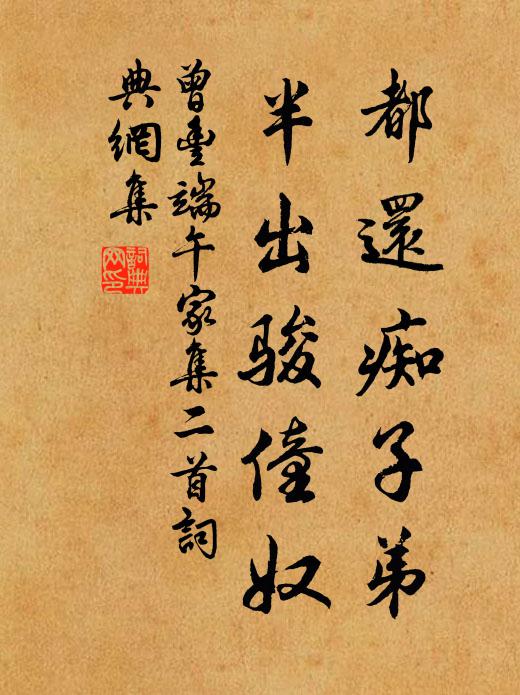 都還痴子弟
半出骏僮奴
曾豊端午家集二首詞
典網集
詞典
网印